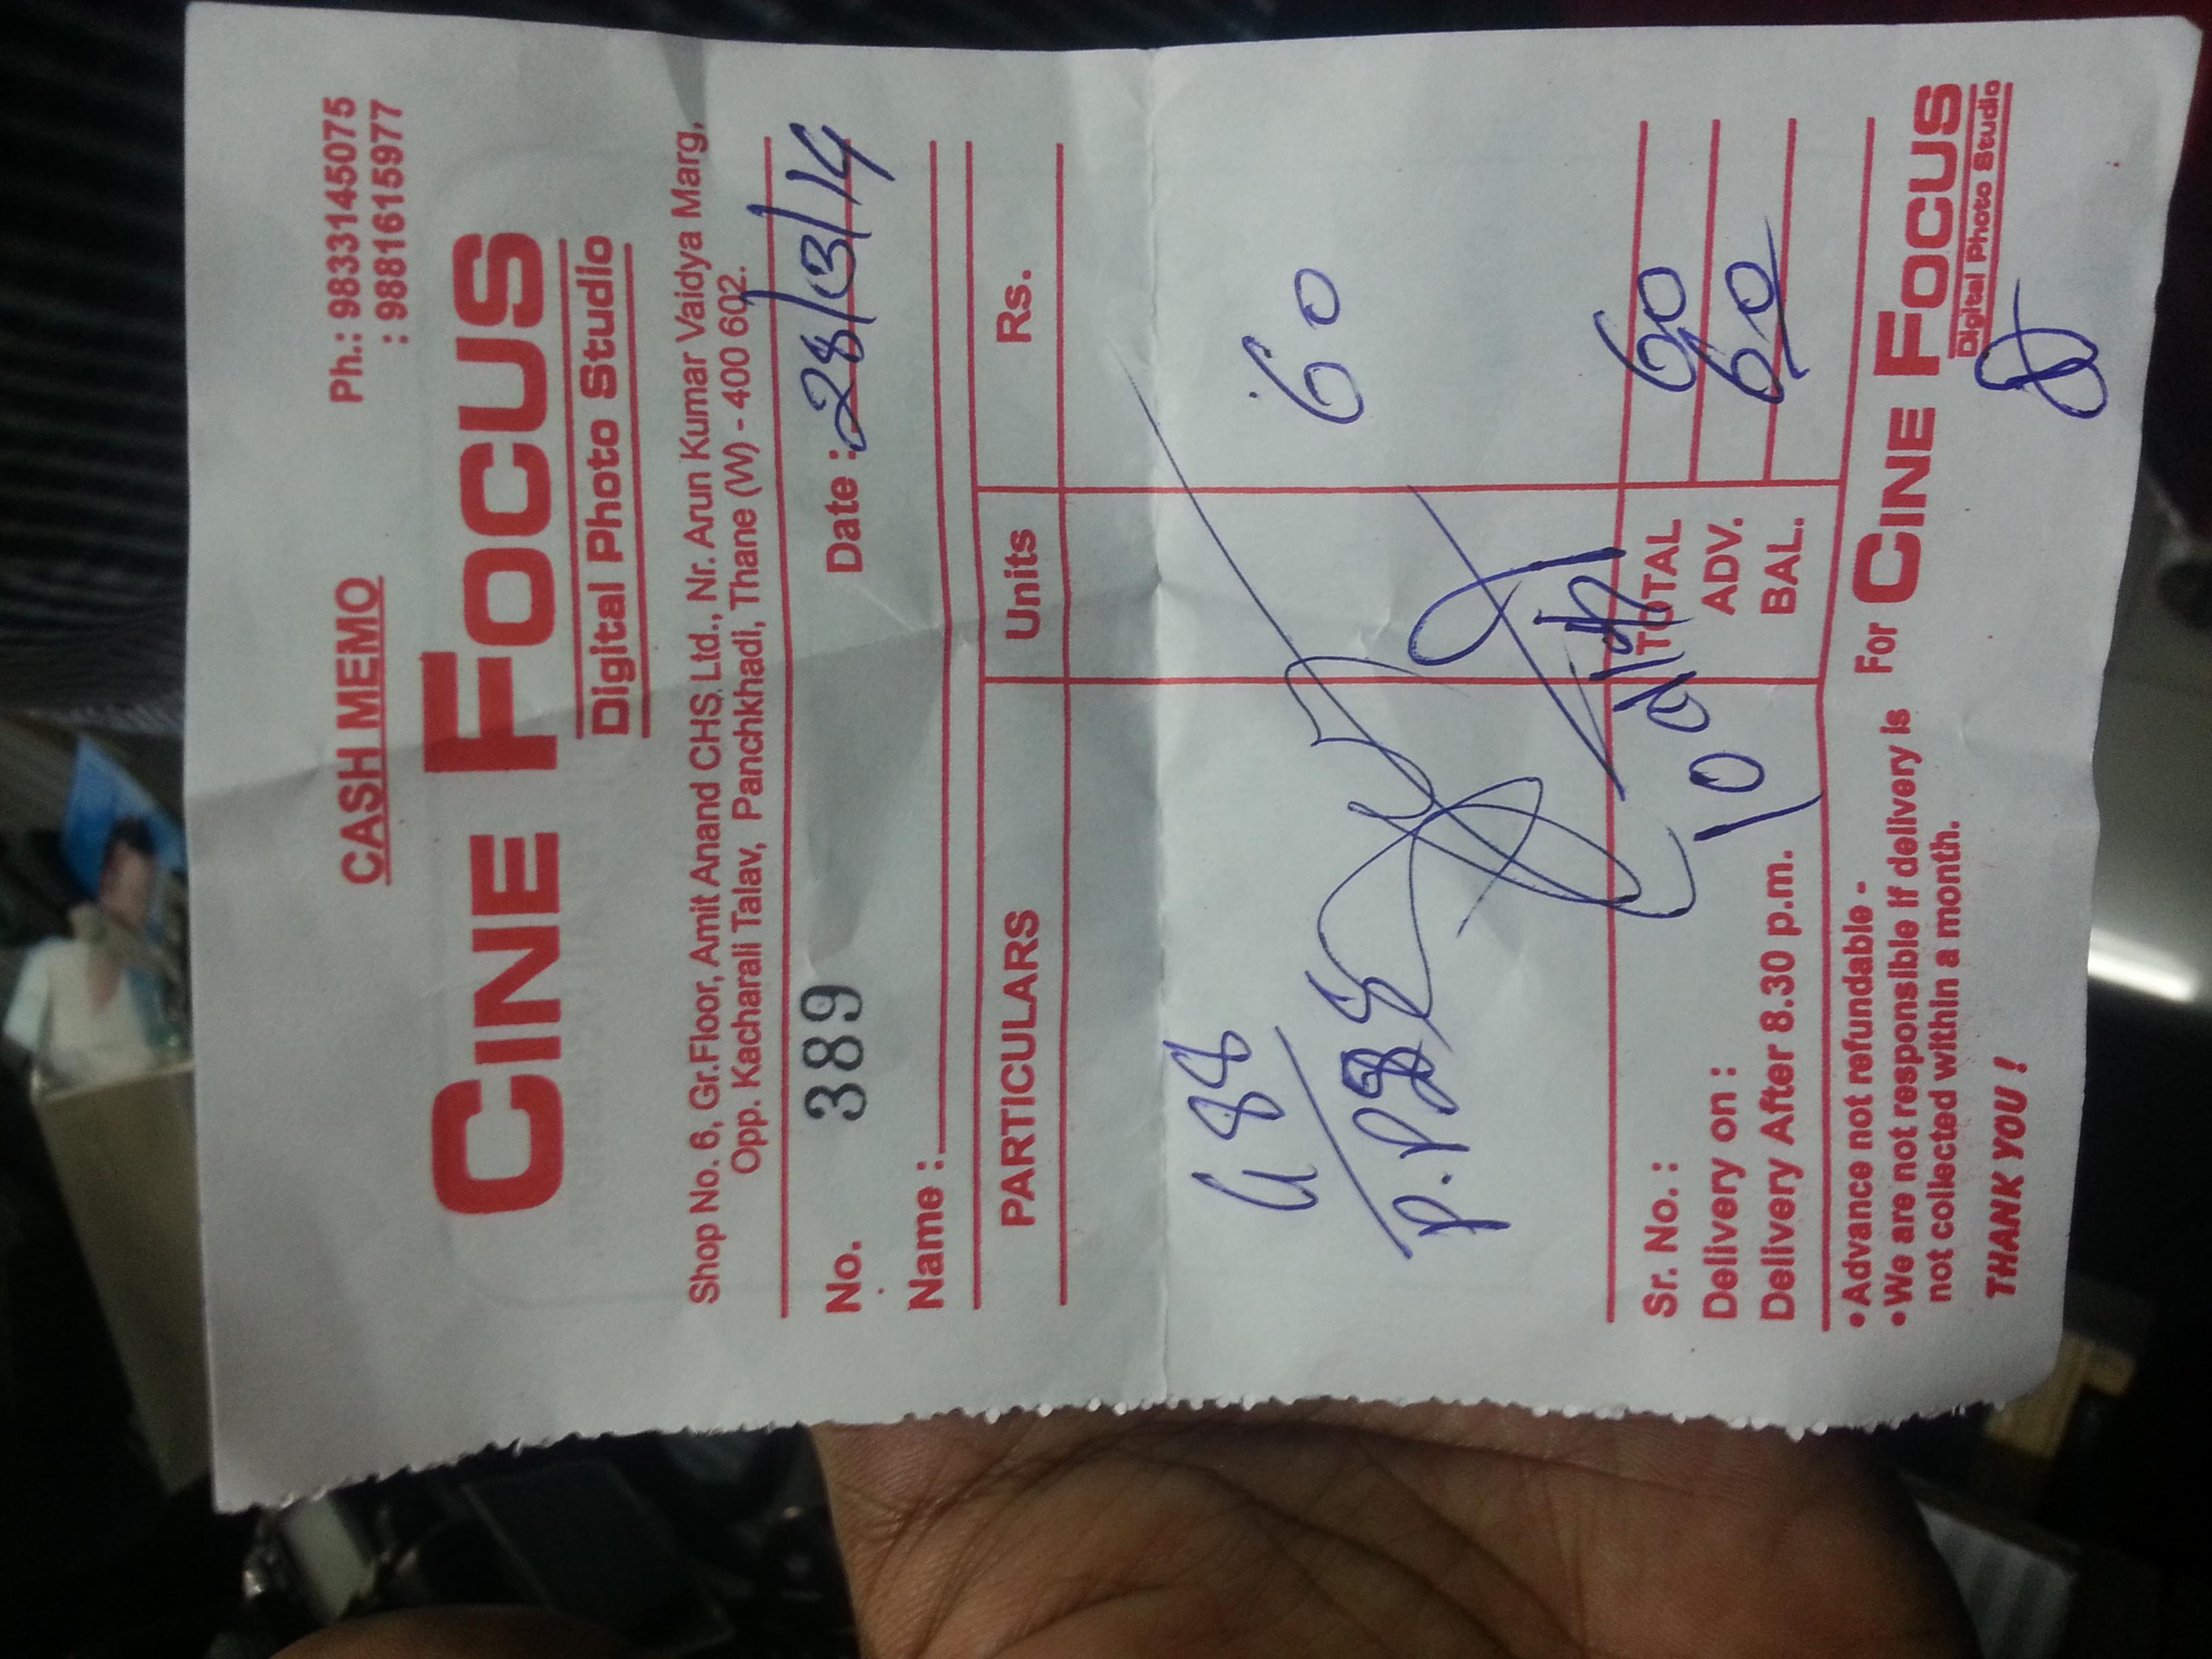 CASH MEMO
Ph.: 9833145075
: 9881615977
CINE FOCUS
Digital Photo Studio
Shop No. 6, Gr.Floor, Amit Anand CHS. Ltd., Nr. Arun Kumar Vaidya Marg,
Opp. Kacharali Talav, Panchkhadi, Thane (W) - 400 602.
No. 389 Date : 28/3/14
Name :
PARTICULARS Units Rs.
488
60
P.P
Sr. No. : TOTAL 60
Delivery on : ADV. 60
Delivery After 8.30 p.m. BAL.
• Advance not refundable -
• We are not responsible if delivery is
not collected within a month.
THANK YOU !
For CINE FOCUS
Digital Photo Studio